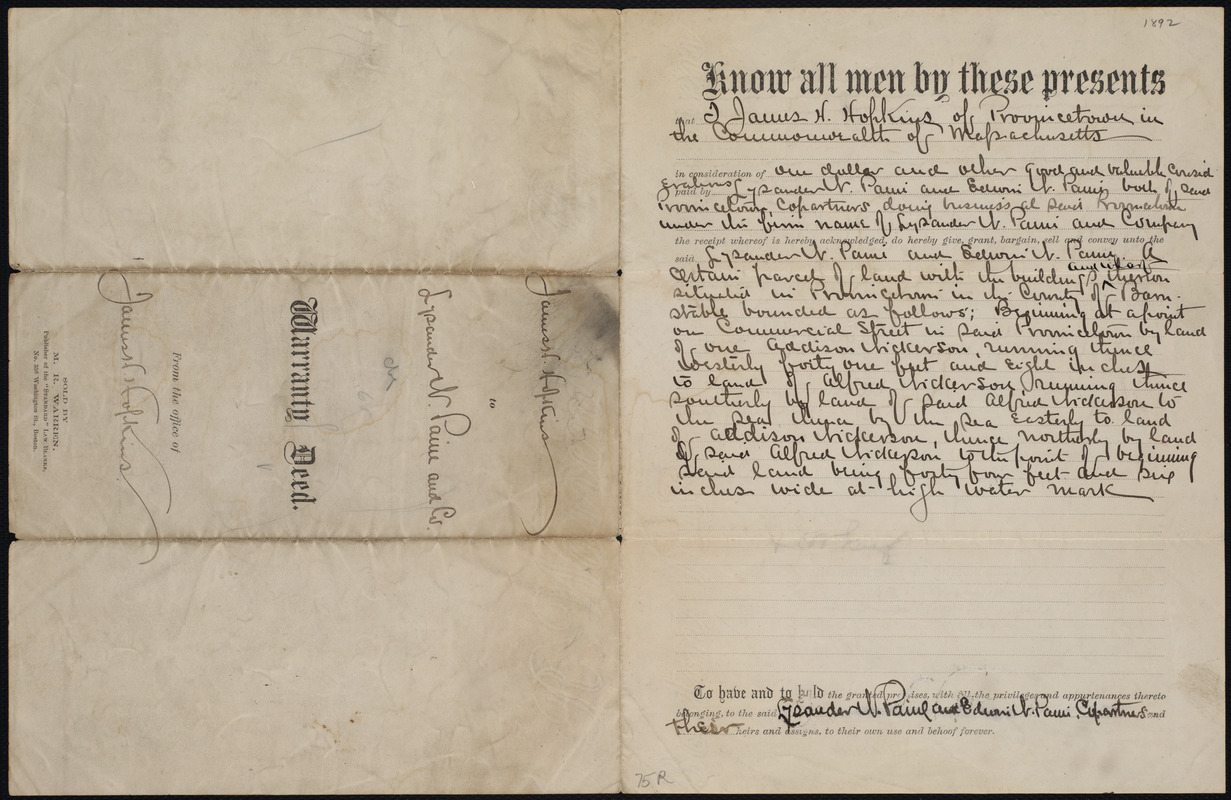 1892
Know all men by these presents
that I James H. Hopkins of Provincetown in
the Commonwealth of Massachusetts
in consideration of one dollar and other good and valuable consid
erations
paid by Lysander N. Paine and Edwin N. Paine both of said
Provincetown, Copartners doing business at said Provincetown
under the firm name of Lysander N. Paine and Company
the receipt whereof is hereby acknowledged, do hereby give, grant, bargain, sell and convey unto the
said Lysander N. Paine and Edwin N. Paine. A
certain parcel of land with the buildings thereon
situated in Provincetown in the County of Barn-
stable bounded as follows; Beginning at a point
on Commercial Street in said Provincetown by land
of one Addison Nickerson, running thence
Westerly forty one feet and eight inches
to land of Alfred Nickerson, running thence
southerly by land of said Alfred Nickerson to
the sea, thence by the sea Easterly to land
of Addison Nickerson, thence northerly by land
of said Alfred Nickerson to the point of beginning
said land being forty four feet and six
inches wide at high water mark
To have and to hold the granted premises, with all the privileges and appurtenances thereto
belonging, to the said Lysander N. Paine and Edwin N. Paine, Copartners and
their heirs and assigns, to their own use and behoof forever.
75R
James H. Hopkins
to
Lysander N. Paine and Co.
Warranty Deed.
From the office of
James H. Hopkins.
SOLD BY
M. R. WARREN,
Publisher of the "STANDARD" LAW BLANKS,
No. 336 Washington St., Boston.